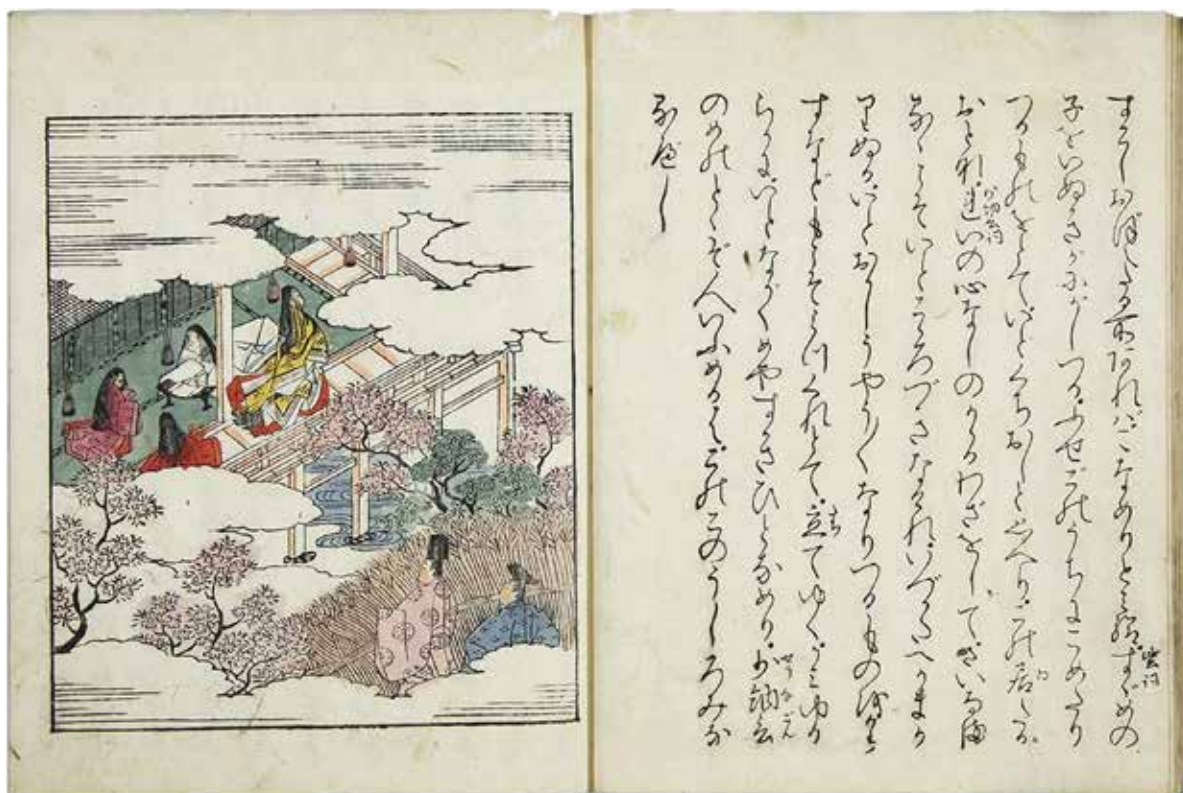 すこしおぼえたる所あれば、こなめりと見給。すゞめの
子をいぬきがにがしつる。ふせごのうちにこめたり
つるものをとて、いとくちおしと思へり。この居たる
おとな、れいの心なしのかゝるわざをして、さいなま
るゝこそいとこゝろづきなけれ。いづかたへかまか
りぬる。いとおかしうやう〱なりつるものを。から
すなどもこそ見つくれとて、立てゆく。かみゆる
らかに、いとながくめやすきひとなめり。少納言
のめのとゝぞ人いふめるは、このこのうしろみな
るべし